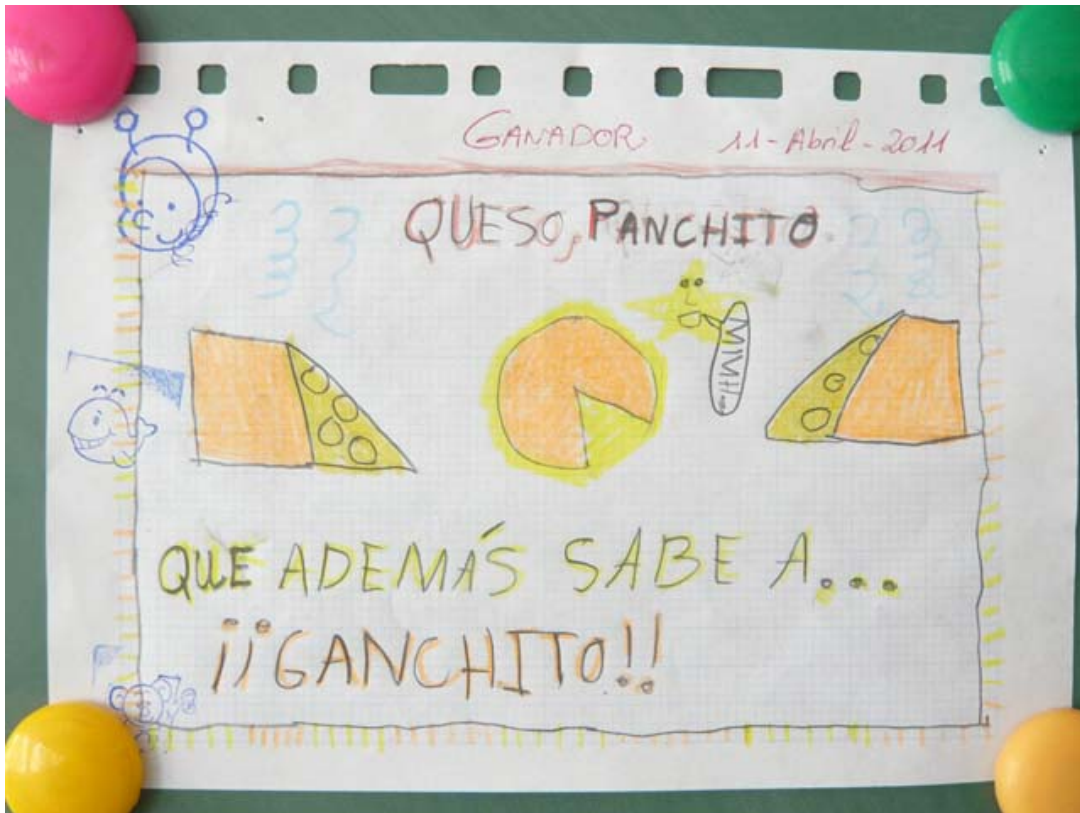 GANADOR 11-Abril-2011
QUESO, PANCHITO
QUE ADEMÁS SABE A...
¡¡GANCHITO!!